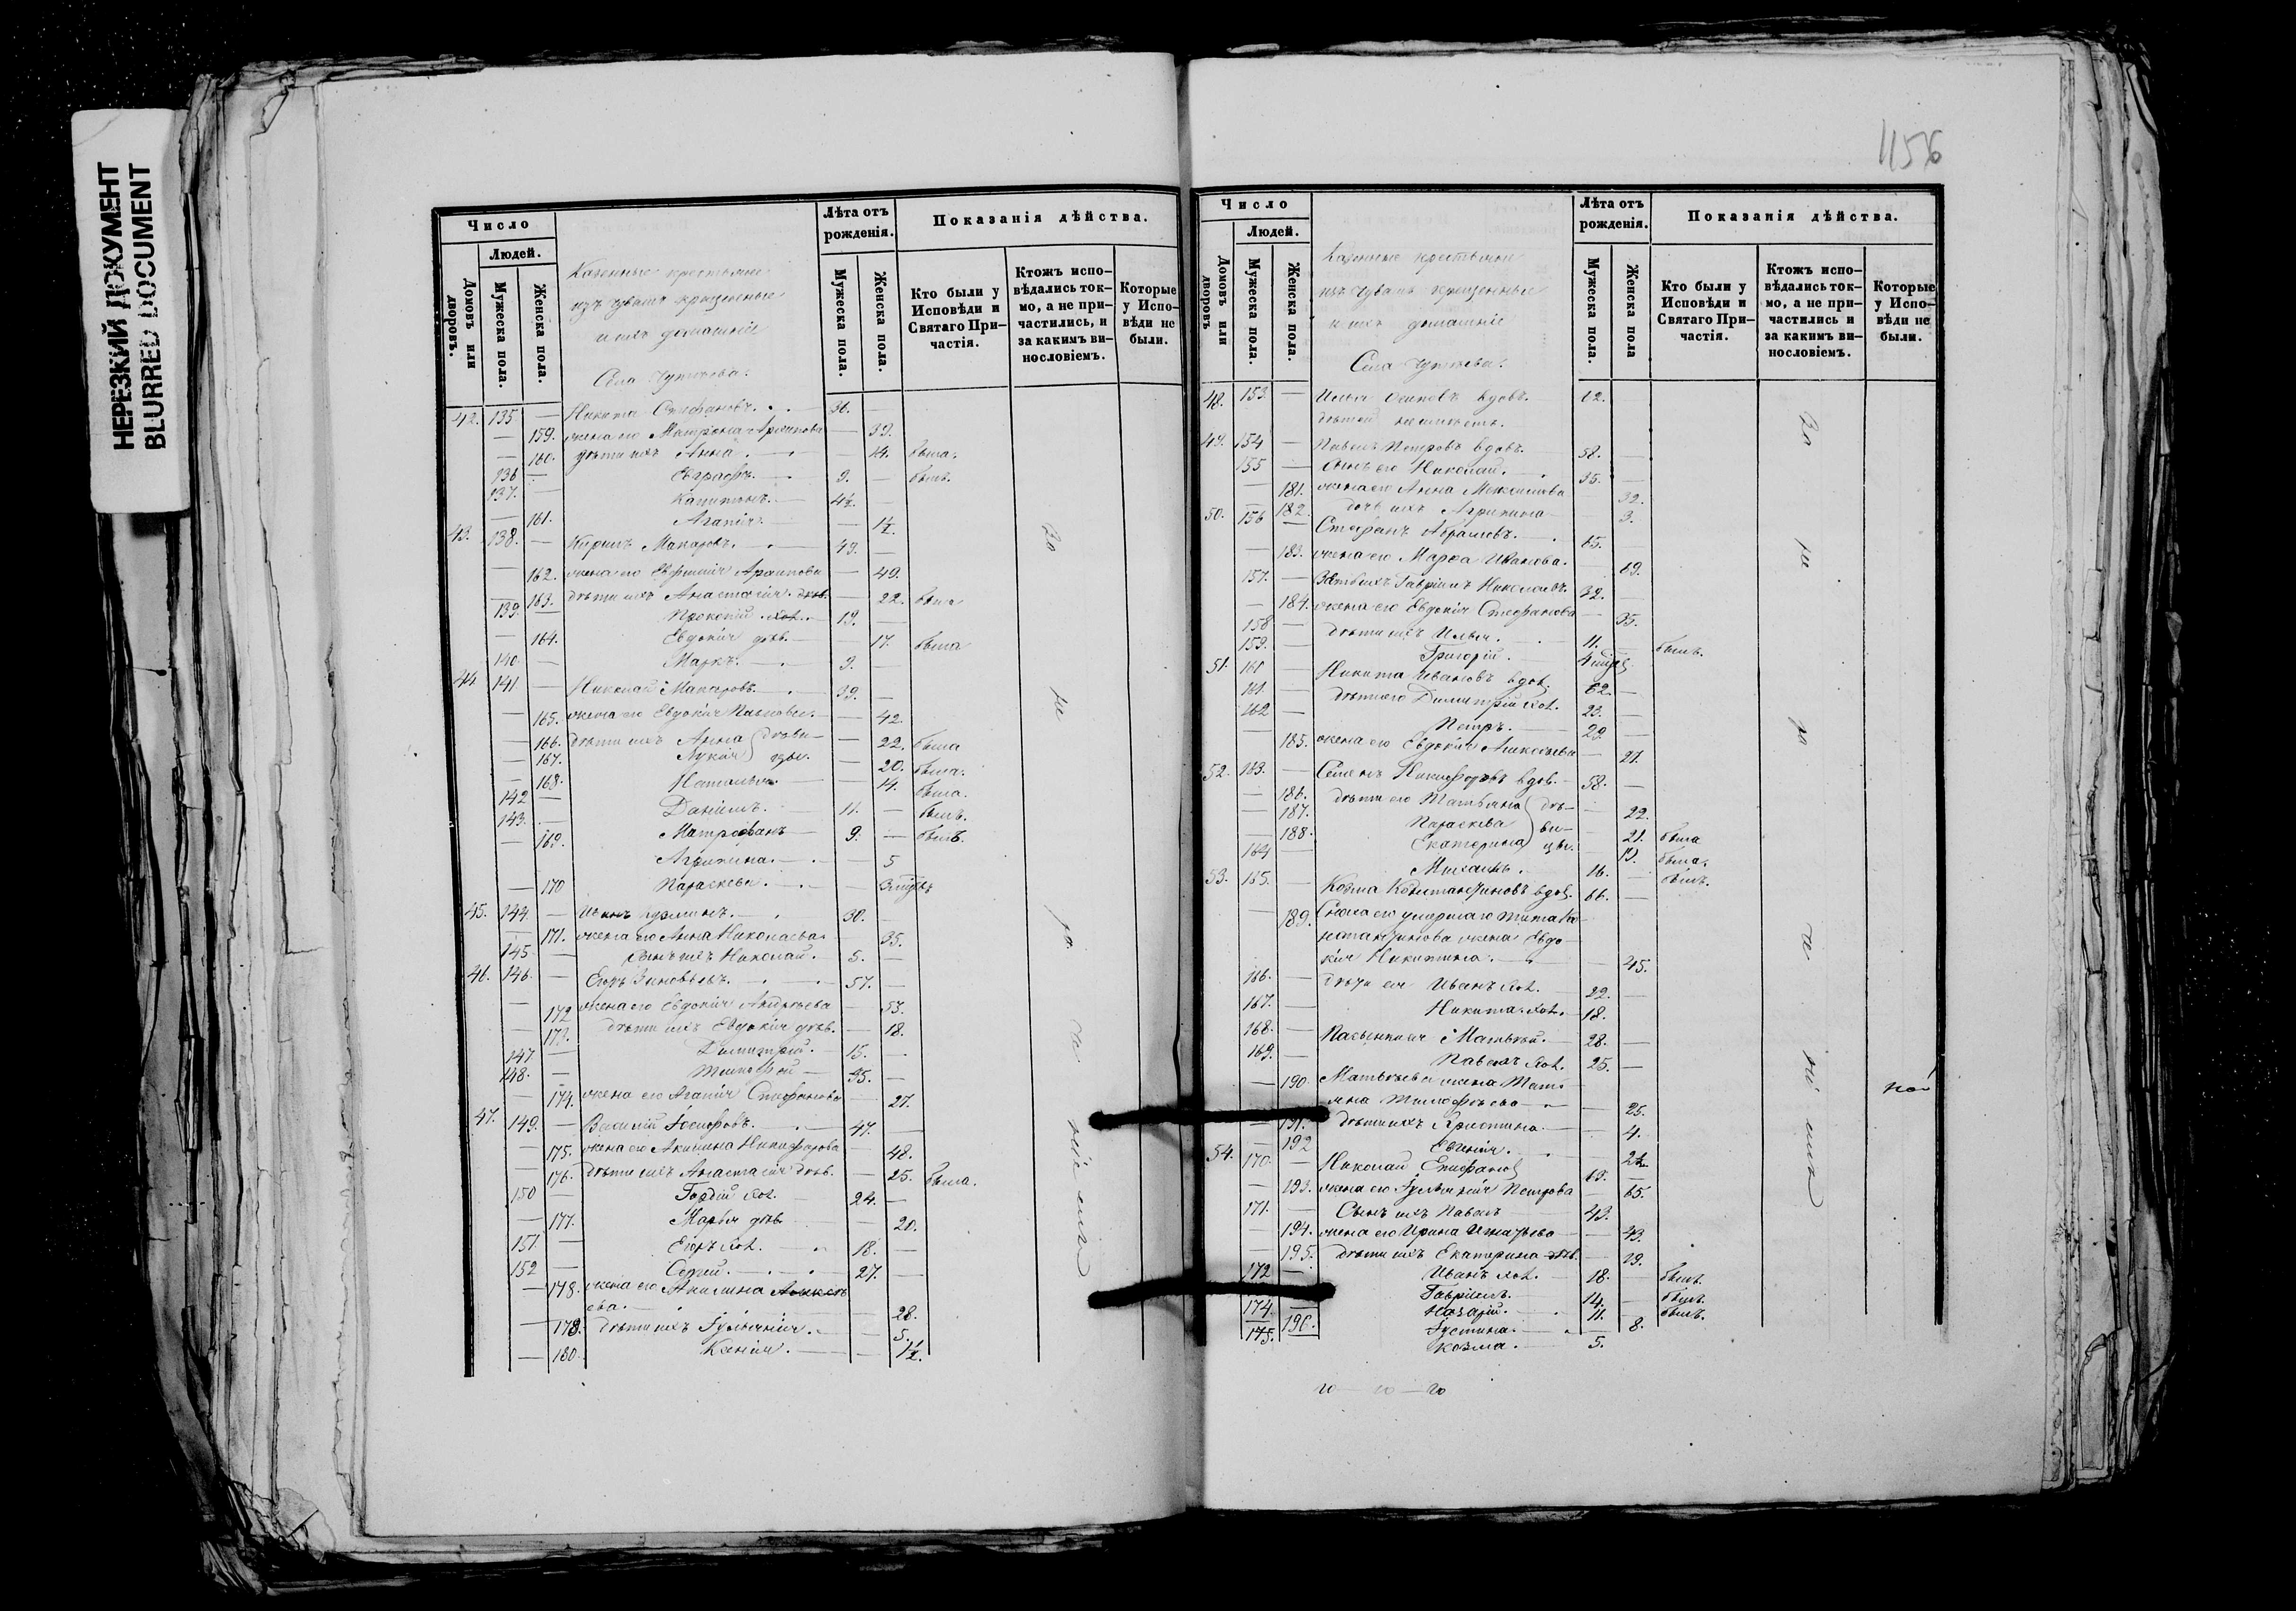 НЕРЕЗКИЙ ДОКУМЕНТ
BLURRED DOCUMENT
1156
Число
Людей.
Домовъ или дворовъ.
Мужеска пола.
Женска пола.
Лѣта отъ рожденія.
Мужеска пола.
Женска пола.
Показанія дѣйства.
Кто были у Исповѣди и Святаго При-частія.
Ктожъ испо-вѣдались ток-мо, а не при-частились, и за какимъ ви-нословіемъ.
Которые у Испо-вѣди не были.
Казенные крестьяне
изъ чувашъ крещенные
и ихъ домашніе
Села
42. 135 — Никита Стефановъ. 36. —
— 159. жена его Матрона Архипова — 39.
— 160. дѣти ихъ Анна — 14. была.
136 — Евграфъ. 9. — былъ.
137. — Капитонъ. 4½ —
— 161. Агапія. — 1½
43. 138. — Кирилъ Макаровъ. 49. —
— 162. жена его Евфимія Архипова — 49.
— 163. дѣти ихъ Анастасія дѣв. — 22. была
139. — Прокопій хол. 19. —
— 164. Евдокія дѣв. — 17. была
140. — Маркъ. 9. —
44 141 — Николай Макаровъ. 39. —
— 165. жена его Евдокія Павлова. — 42.
— 166. дѣти ихъ Анна дѣви- — 22. была
— 167. Лукія цы. — 20. была.
— 168. Наталья — 14. была.
142 — Даніилъ. 11. — былъ.
143. — Митрофанъ 9. — былъ.
— 169. Агрипина. — 5
— 170 Параскева. —
45. 144. — Иванъ 30. —
— 171. жена его Анна Николаева — 35.
145 — сынъ ихъ Николай. 5. —
46. 146. — Егоръ Зиновьевъ. 57. —
— 172 жена его Евдокія Андреева — 53.
— 173. дѣти ихъ Евдокія дѣв. — 18.
147 — Димитрій. 15. —
148. — Тимофей 35. —
— 174. жена его Агапія Стефанова — 27.
47. 149. — Василій Іосифовъ. 47. —
— 175. жена его Акилина Никифорова — 48.
— 176. дѣти ихъ Анастасія дѣв. — 25. была.
150 — Гордій хол. 24. —
— 177. Марья дѣв — 20.
151. — Егоръ хол. 18. —
152 — Сергій. 27. —
— 178. жена его Акилина Алексѣ
ева. — 28.
— 179. дѣти ихъ Іуліанія. — 5.
— 180. Ксенія. — 1½.
за не ра че ніемъ
Число
Людей.
Домовъ или дворовъ
Мужеска пола.
Женска пола.
Лѣта отъ рожденія.
Мужеска пола.
Женска пола
Показанія дѣйства.
Кто были у Исповѣди и Святаго При-частія.
Ктожъ испо-вѣдались ток-мо, а не при-частились и за какимъ ви-нословіемъ.
Которые у Испо-вѣди не были.
Казенные крестьяне
изъ чувашъ крещенные
и ихъ домашніе
Села
48. 153. — Илья Осиповъ вдовъ. 62. —
дѣтей не имѣетъ.
49. 154 — Павелъ Петровъ вдовъ. 58. —
155 — сынъ его Николай. 35. —
— 181. жена его Анна Максимова — 32.
— 182. дочь ихъ Агрипина — 3.
50. 156 — Стефанъ Абрамовъ. 65. —
— 183. жена его Марфа Иванова. — 69.
157. — Зять ихъ Гавріилъ Николаевъ. 32. —
— 184. жена его Евдокія Стефанова — 35.
158 — дѣти ихъ Илья. 11. — былъ.
159. — Григорій.
51. 160 — Никита Ивановъ вдов. 62. —
161. — дѣти его Димитрій хол. 23. —
162 — Петръ. 29. —
— 185. жена его Евдокія Алексѣева — 21.
52. 163. — Семенъ Никифоровъ вдов. 58. —
— 186. дѣти его Татьяна дѣ- — 22.
— 187. Параскева ви- — 21. была
— 188. Екатерина цы. — 19. была.
164 — Михаилъ. 16. — былъ.
53. 165. — Козма Константиновъ вдов. 66. —
— 189. Сноха его умершаго Тита Ко
нстантинова жена Евдо-
кія Никитина. — 45.
166. — дѣти ея Иванъ хол. 22. —
167. — Никита хол. 18. —
168. — Пасынки ея Матвѣй. 28. —
169. — Павелъ хол. 25. —
— 190. Матвѣева жена Тать-
яна Тимофѣева — 25.
— 191. дѣти ихъ Христина. — 4.
— 192 Евгенія. — 2½
54. 170. — Николай Епифанов 69. —
— 193. жена его Іуліанія Петрова — 65.
171. — Сынъ ихъ Павелъ 43. —
— 194. жена его Ирина Игнатьева — 43.
— 195. дѣти ихъ Екатерина дѣв. — 19.
172 — Иванъ хол. 18. — былъ.
Гавріилъ. 14. — былъ.
174. — Назарій. 11. — былъ.
196. Іустина. — 8.
175. Козма. 5.
за не ра че ніемъ